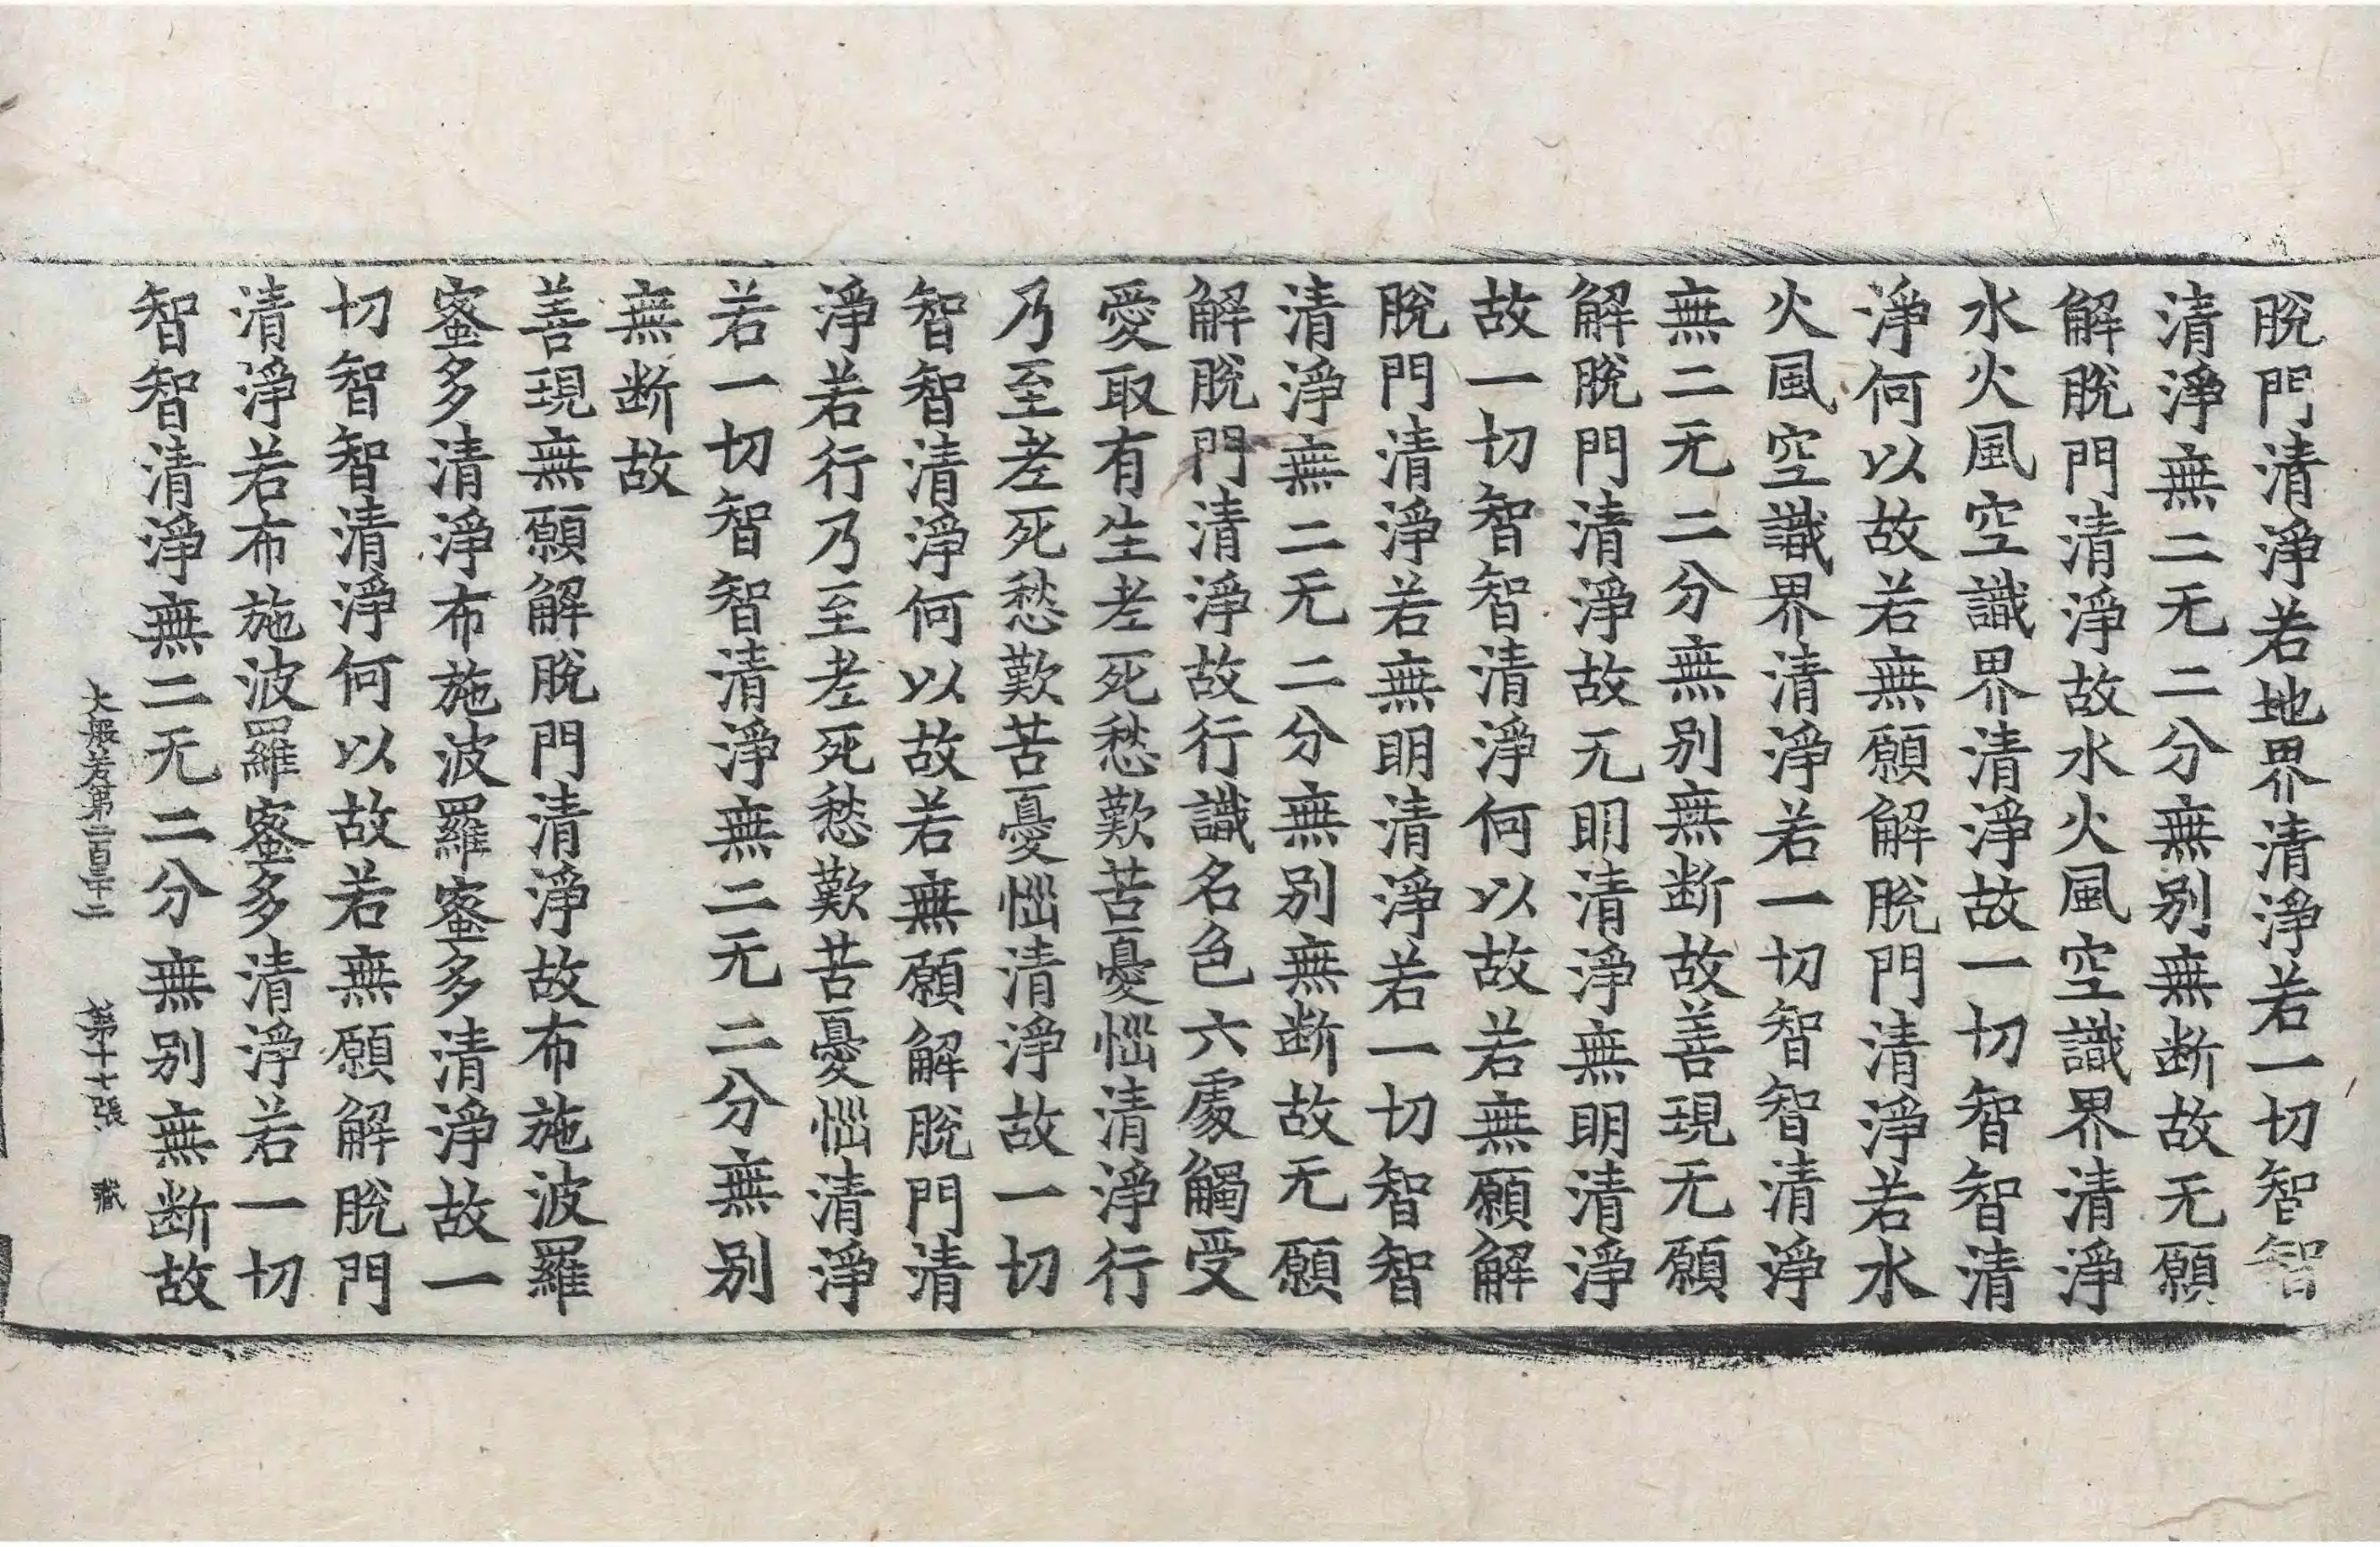 脫門清淨若地界清淨若一切智智
清淨無二无二分無別無断故无願
解脫門清淨故水火風空識界清淨
水火風空識界清淨故一切智智清
淨何以故若無願解脫門清淨若水
火風空識界清淨若一切智智清淨
無二无二分無別無断故善現无願
解脫門清淨故无明清淨無明清淨
故一切智智清淨何以故若無願解
脫門清淨若無明清淨若一切智智
清淨無二无二分無別無断故无願
解脫門清淨故行識名色六處觸受
愛取有生老死愁歎苦憂惱清淨行
乃至老死愁歎苦憂惱清淨故一切
智智清淨何以故若無願解脫門清
淨若行乃至老死愁歎苦憂惱清淨
若一切智智清淨無二无二分無別
無断故
善現無願解脫門清淨故布施波羅
蜜多清淨布施波羅蜜多清淨故一
切智智清淨何以故若無願解脫門
清淨若布施波羅蜜多清淨若一切
智智清淨無二无二分無別無断故
大般若第二百三十二 第十七張